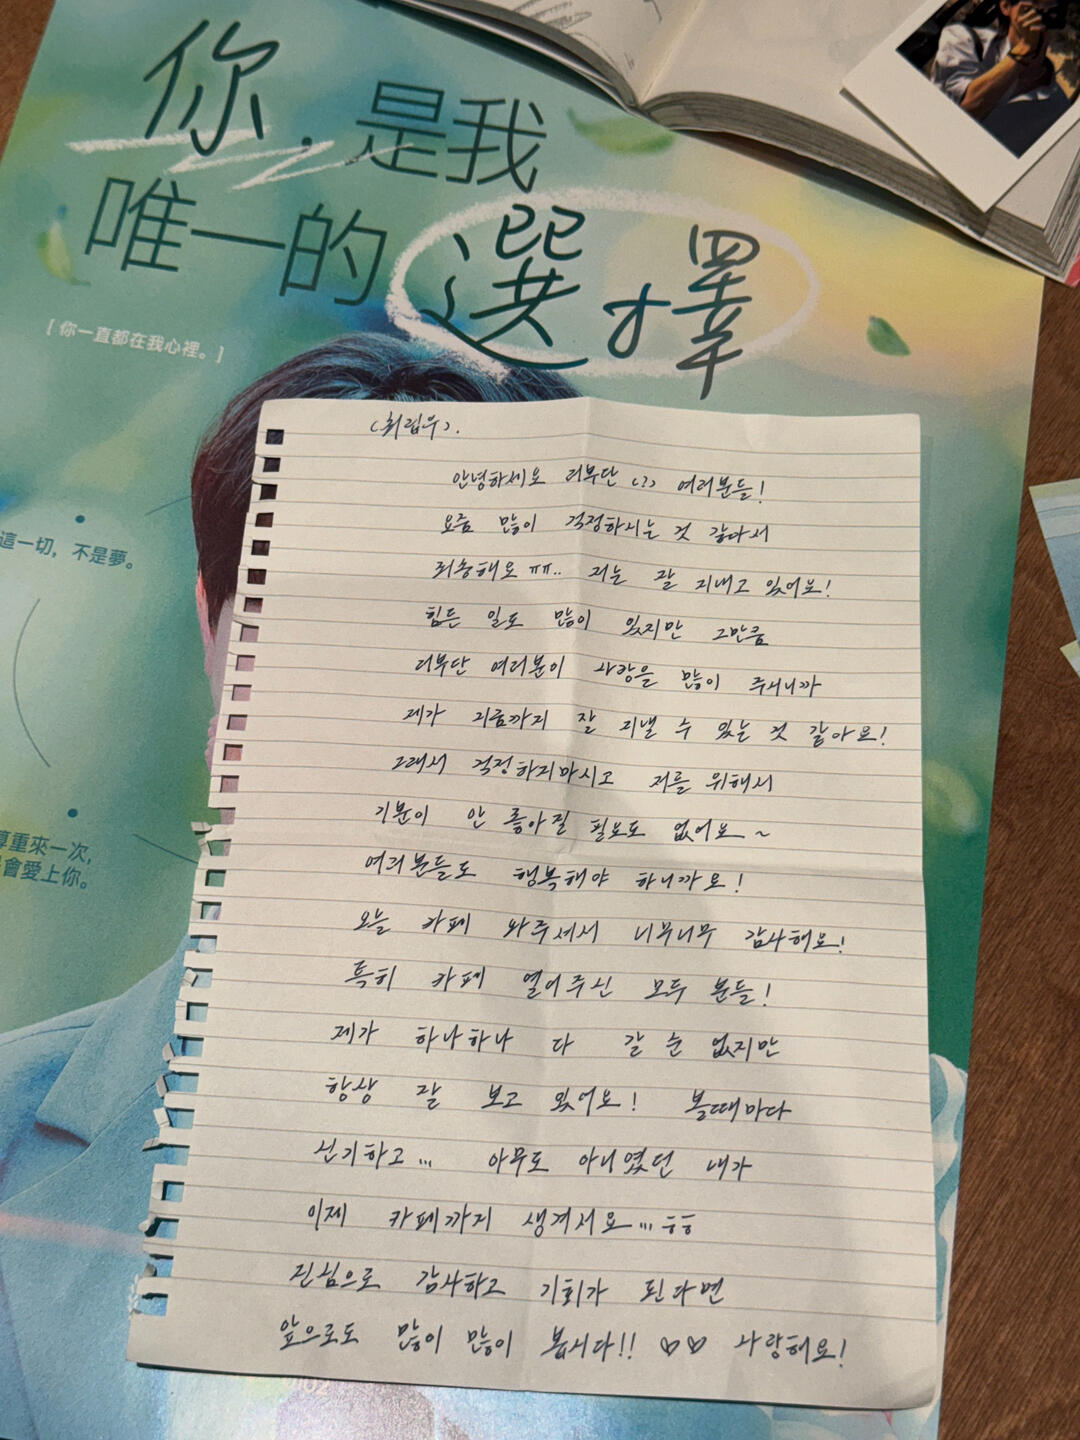 你，是我
唯一的選擇
[ 你一直都在我心裡。]
這一切，不是夢。
尊重來一次，
會愛上你。
(최립우).
안녕하세요 리부단 (?) 여러분들!
요즘 많이 걱정하시는 것 같아서
죄송해요 ㅠㅠ.. 저는 잘 지내고 있어요!
힘든 일도 많이 있지만 그만큼
리부단 여러분이 사랑을 많이 주시니까
제가 지금까지 잘 지낼 수 있는 것 같아요!
그래서 걱정하지마시고 저를 위해서
기분이 안 좋아질 필요도 없어요~
여러분들도 행복해야 하니까요!
오늘 카페 와주셔서 너무너무 감사해요!
특히 카페 열어주신 모두 분들!
제가 하나하나 다 갈 순 없지만
항상 잘 보고 있어요! 볼때마다
신기하고... 아무도 아니였던 내가
이제 카페까지 생겨서요... ㅎㅎ
진심으로 감사하고 기회가 된다면
앞으로도 많이 많이 봅시다!! ♡♡ 사랑해요!